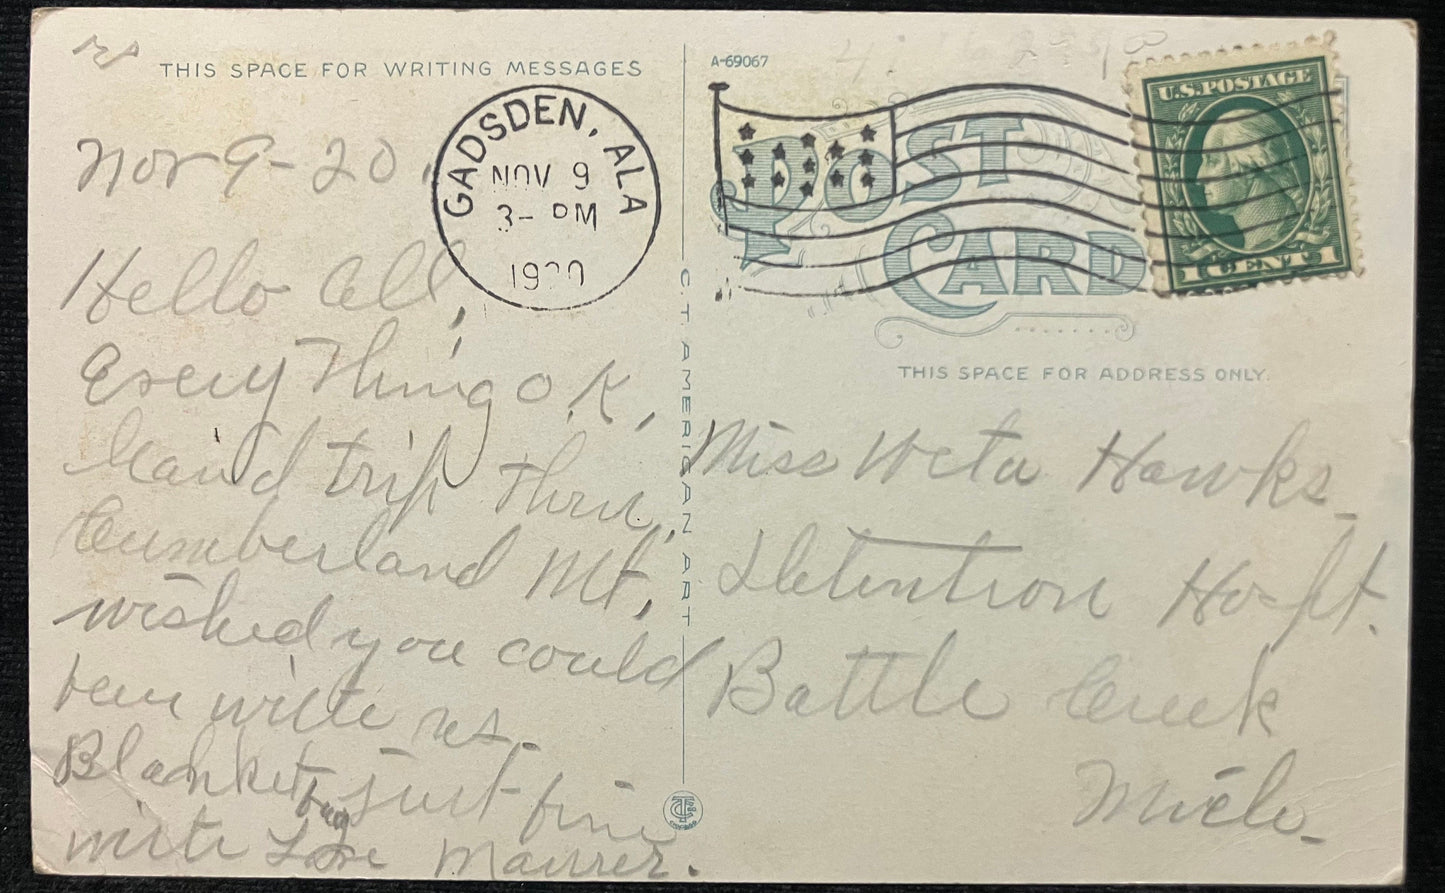 THIS SPACE FOR WRITING MESSAGES
A-69067
U.S. POSTAGE
1 CENT 1
POST
CARD
GADSDEN, ALA
NOV 9
3- PM
1920
Nov 9-20.
Hello all,
Every Thing O.K,
trip Thru,
Cumberland Mt,
wished you could
been with us.
Blanket bag just fine
with Love Maurer.
C.T. AMERICAN ART
THIS SPACE FOR ADDRESS ONLY.
Miss Weta Hawks
Detention Hospt.
Battle Creek
Mich.